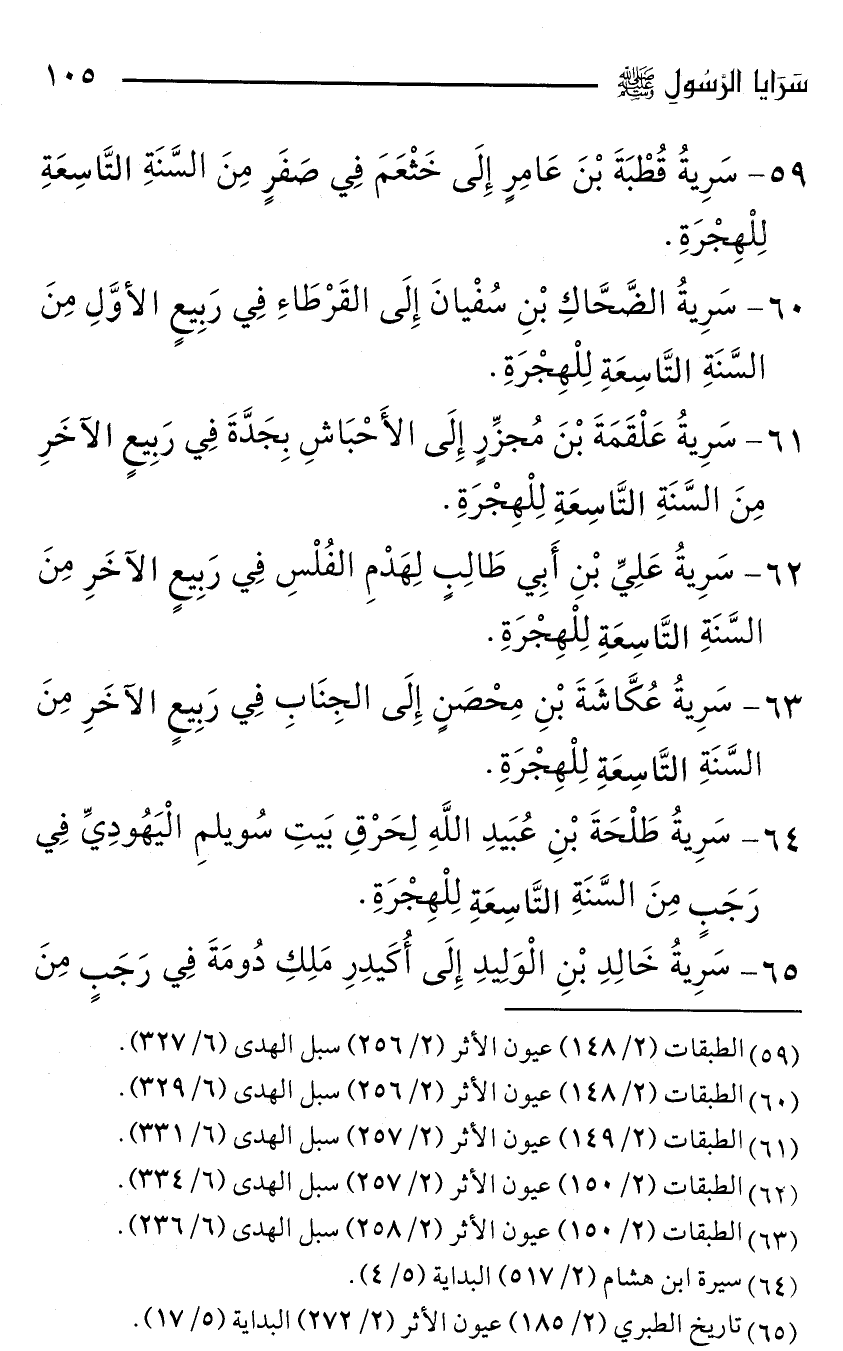 سَرَايا الرَّسُولِ ﷺ ١٠٥
٥٩- سَرِيةُ قُطْبَةَ بْنَ عَامِرٍ إِلَى خَثْعَمَ فِي صَفَرٍ مِنَ السَّنَةِ التَّاسِعَةِ
لِلْهِجْرَةِ.
٦٠- سَرِيةُ الضَّحَّاكِ بْنِ سُفْيانَ إِلَى القَرْطَاءِ فِي رَبِيعٍ الأوَّلِ مِنَ
السَّنَةِ التَّاسِعَةِ لِلْهِجْرَةِ.
٦١- سَرِيةُ عَلْقَمَةَ بْنَ مُجزِّرٍ إِلَى الأَحْبَاشِ بِجَدَّةَ فِي رَبِيعٍ الآخَرِ
مِنَ السَّنَةِ التَّاسِعَةِ لِلْهِجْرَةِ.
٦٢- سَرِيةُ عَلِيِّ بْنِ أَبِي طَالِبٍ لِهَدْمِ الفُلْسِ فِي رَبِيعٍ الآخَرِ مِنَ
السَّنَةِ التَّاسِعَةِ لِلْهِجْرَةِ.
٦٣- سَرِيةُ عُكَّاشَةَ بْنِ مِحْصَنٍ إِلَى الجِنَابِ فِي رَبِيعٍ الآخَرِ مِنَ
السَّنَةِ التَّاسِعَةِ لِلْهِجْرَةِ.
٦٤- سَرِيةُ طَلْحَةَ بْنِ عُبَيدِ اللَّهِ لِحَرْقِ بَيتِ سُويلمِ الْيَهُودِيِّ فِي
رَجَبٍ مِنَ السَّنَةِ التَّاسِعَةِ لِلْهِجْرَةِ.
٦٥- سَرِيةُ خَالِدِ بْنِ الْوَلِيدِ إِلَى أُكَيدِرِ مَلِكِ دُومَةَ فِي رَجَبٍ مِنَ
(٥٩) الطبقات (٢/ ١٤٨) عيون الأثر (٢/ ٢٥٦) سبل الهدى (٦/ ٣٢٧).
(٦٠) الطبقات (٢/ ١٤٨) عيون الأثر (٢/ ٢٥٦) سبل الهدى (٦/ ٣٢٩).
(٦١) الطبقات (٢/ ١٤٩) عيون الأثر (٢/ ٢٥٧) سبل الهدى (٦/ ٣٣١).
(٦٢) الطبقات (٢/ ١٥٠) عيون الأثر (٢/ ٢٥٧) سبل الهدى (٦/ ٣٣٤).
(٦٣) الطبقات (٢/ ١٥٠) عيون الأثر (٢/ ٢٥٨) سبل الهدى (٦/ ٢٣٦).
(٦٤) سيرة ابن هشام (٢/ ٥١٧) البداية (٥/ ٤).
(٦٥) تاريخ الطبري (٢/ ١٨٥) عيون الأثر (٢/ ٢٧٢) البداية (٥/ ١٧).